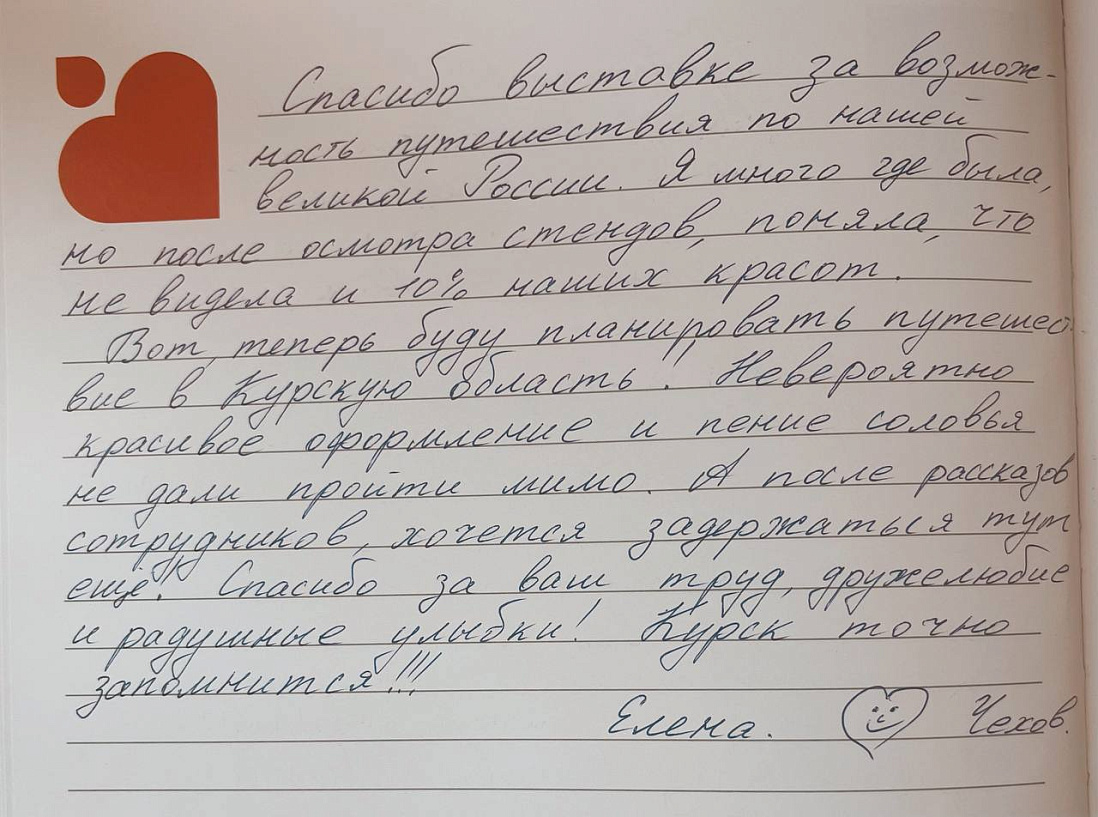 Спасибо выставке за возмож-
ность путешествия по нашей
великой России. Я много где была,
но после осмотра стендов, поняла, что
не видела и 10% наших красот.
Вот, теперь буду планировать путешест
вие в Курскую область! Невероятно
красивое оформление и пение соловья
не дали пройти мимо. А после рассказов
сотрудников, хочется задержаться тут
ещё! Спасибо за ваш труд, дружелюбие
и радушные улыбки! Курск точно
запомнится!!!
Елена. Чехов.